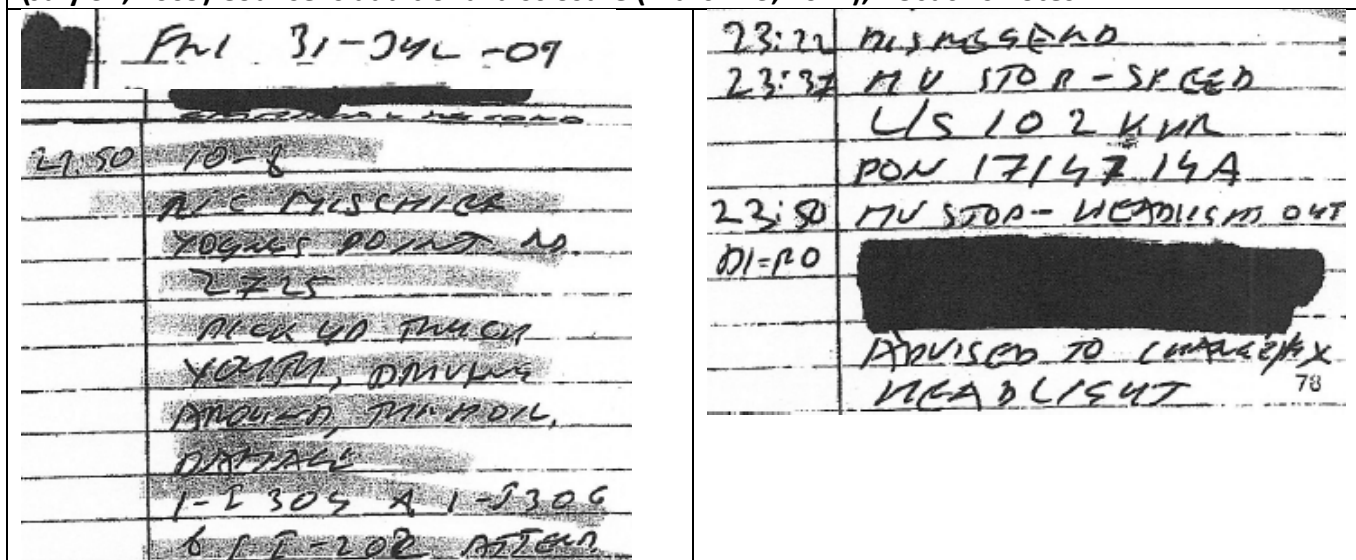 FRI 31-JUL-09
21:50 10-8
R/C MISCHIEF
YOUNGS POINT RD.
2725
PICK UP TRUCK
YOUTH, DRIVING
AROUND,
DAMAGE
1-I304 & 1-I306
ATTEND
23:22 DISREGARD
23:37 MV STOP - SPEED
L/S 102 KMR
PON 1714714A
23:50 MV STOP - HEADLIGHT OUT
ADVISED TO CHANGE/FIX
HEADLIGHT
78